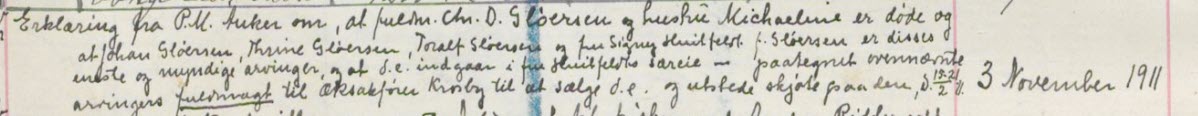 Erklæring fra P.M. Anker om, at fuldm. Chr. D. Gløersen og hustru Michaeline er døde og
at Johan Gløersen, Thrine Gløersen, Toralf Gløersen og fru Signy Huitfeldt f. Gløersen er disses
eneste og myndige arvinger, og at d.e. indgaar i fru Huitfeldts særeie — paategnet ovennævnte
arvingers fuldmagt til O.r.sakfører Krosby til at sælge d.e. og utstede skjøte paa den, d. 3 November 1911